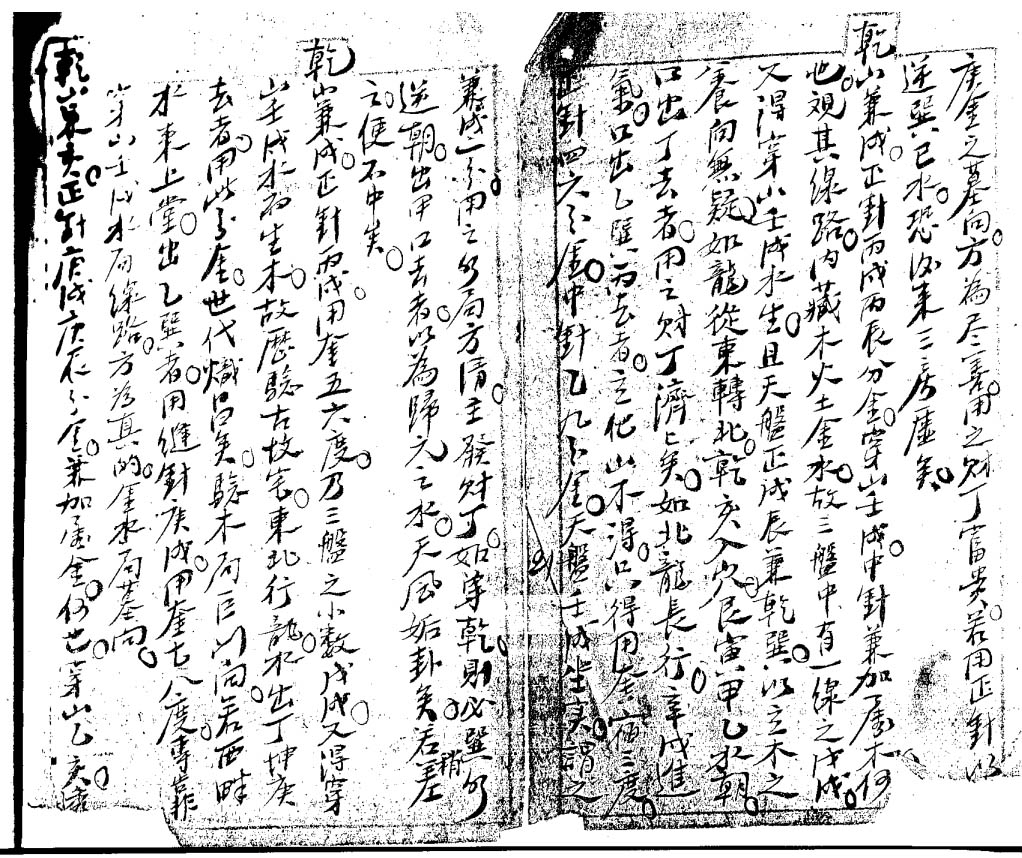 庚金之墓向方為尽善用之財丁富貴若用正針以
逆巽巳水恐後來三房虛矣
乾山兼戌正針丙戌丙辰分金穿山壬戌中針兼加屬木何
也观其線路内藏木火土金水故三盤中有一線之戊戌
又得穿山壬戌水生且天盤正戌辰兼乾巽以立木之
養向無疑如龍從東轉北乾亥入穴艮寅甲乙水朝
口出丁去者用之財丁濟上矣如北龍長行辛戌進
氣口出乙巽丙去者立化山不得只得用奎宿三度
正針四六分金中針乙九分金天盤壬戌坐亥謂之
兼戌一分用之水局方清主發財丁如専乾則必巽水
逆朝出甲口去者以為歸元之水天風姤卦矣若差
之便不中矣
乾山兼戌正針丙戌用奎五六度乃三盤之小数戊戌又得穿
山壬戌水為生木故歷驗古坟宅東北行龍水出丁坤庚
去者用此分金世代熾昌矣驗木局巨門向若西畔
水來上堂出乙巽者用縫針庚戌甲奎七八度専靠
穿山壬戌水局線路方為真的金水局墓向
乾山兼亥正針庚戌庚辰分金兼加屬金何也穿山乙亥